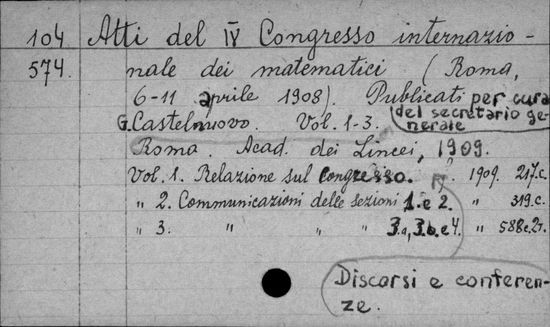 104 Atti del IV Congresso internazio-
574. nale dei matematici (Roma,
6-11 aprile 1908). Publicati per cura
del secretario ge-
G. Castelnuovo. Vol. 1-3. nerale
Roma. Acad. dei Lincei, 1909.
Vol. 1. Relazione sul congresso. 1909. 217.c.
" 2. Communicazioni delle sezioni 1.e 2. " 319.c.
" 3. " " " 3.a, 3.b.e 4. " 588c.
Discorsi e conferen-
ze.